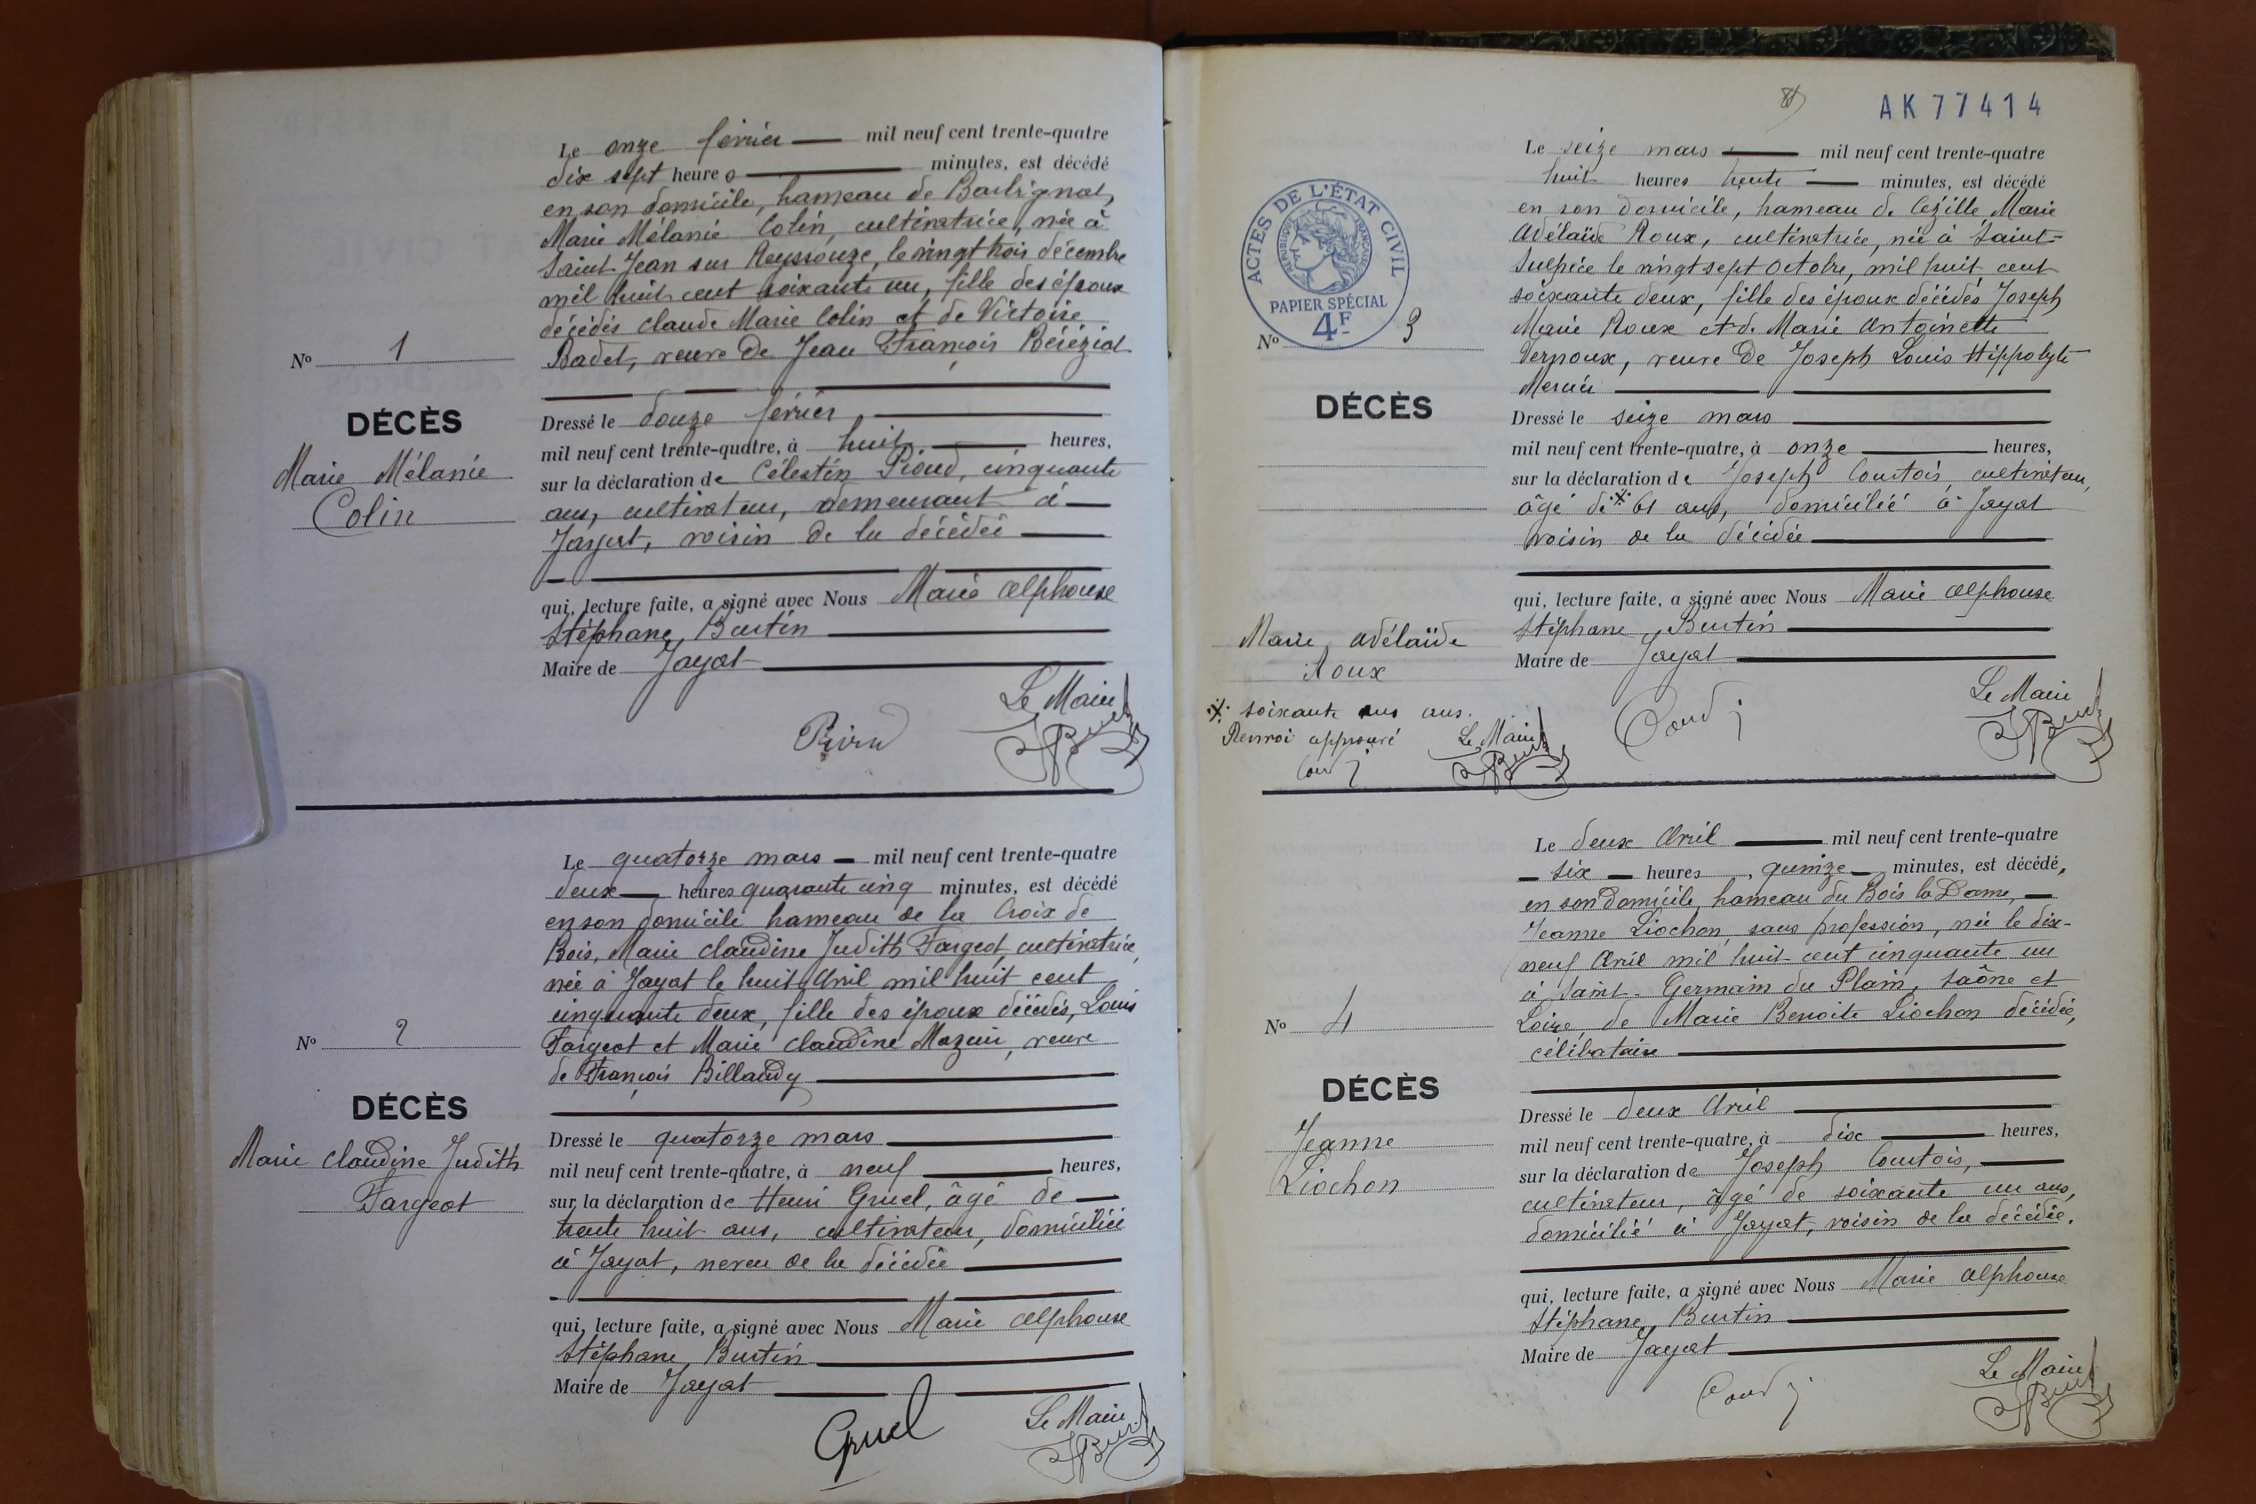 Le onze février mil neuf cent trente-quatre
dix sept heures minutes, est décédé
en son domicile, hameau de
Marie Mélanie Colin, cultivatrice, née à
Saint Jean sur Reyssouze, le vingt trois décembre
mil huit cent soixante un, fille des époux
décédés Claude Marie Colin et de Victoire
Badet, veuve de Jean François Béréziat
No 1
DÉCÈS
Marie Mélanie
Colin
Dressé le douze février
mil neuf cent trente-quatre, à huit heures,
sur la déclaration de Célestin Pioud, cinquante
ans, cultivateur, demeurant à
Jayat, voisin de la décédée
qui, lecture faite, a signé avec Nous Marie Alphonse
Stéphane Burtin
Maire de Jayat
Le Maire
Le quatorze mars mil neuf cent trente-quatre
deux heures quarante cinq minutes, est décédé
en son domicile hameau de la Croix de
Bois, Marie Claudine Judith Fargeot, cultivatrice,
née à Jayat le huit Avril mil huit cent
cinquante deux, fille des époux décédés, Louis
Fargeot et Marie Claudine Mazuir, veuve
de François Billaudy
No 2
DÉCÈS
Marie Claudine Judith
Fargeot
Dressé le quatorze mars
mil neuf cent trente-quatre, à neuf heures,
sur la déclaration de Henri Gruel, âgé de
trente huit ans, cultivateur, domicilié
à Jayat, neveu de la décédée
qui, lecture faite, a signé avec Nous Marie Alphonse
Stéphane Burtin
Maire de Jayat
Gruel
Le Maire
AK77414
Le seize mars mil neuf cent trente-quatre
huit heures trente minutes, est décédé
en son domicile, hameau de Cézille Marie
Adélaïde Roux, cultivatrice, née à Saint-
Sulpice le vingt sept Octobre, mil huit cent
soixante deux, fille des époux décédés Joseph
Marie Roux et de Marie Antoinette
Vernoux, veuve de Joseph Louis Hippolyte
Mercier
ACTES DE L'ÉTAT CIVIL
RÉPUBLIQUE FRANÇAISE
PAPIER SPÉCIAL
4F
No 3
DÉCÈS
Dressé le seize mars
mil neuf cent trente-quatre, à onze heures,
sur la déclaration de Joseph Courtois, cultivateur,
âgé de 61 ans, domicilié à Jayat
voisin de la décédée
qui, lecture faite, a signé avec Nous Marie Alphonse
Stéphane Burtin
Maire de Jayat
Marie Adélaïde
Roux
soixante un ans.
Renvoi approuvé
Le Maire
Le Maire
Le deux Avril mil neuf cent trente-quatre
six heures, quinze minutes, est décédé,
en son domicile, hameau du Bois la Dame,
Jeanne Liochon, sans profession, née le dix-
neuf Avril mil huit cent cinquante un
à Saint-Germain du Plain, Saône et
Loire, de Marie Benoite Liochon décédée,
célibataire
No 4
DÉCÈS
Jeanne
Liochon
Dressé le deux Avril
mil neuf cent trente-quatre, à dix heures,
sur la déclaration de Joseph Courtois,
cultivateur, âgé de soixante un ans,
domicilié à Jayat, voisin de la décédée.
qui, lecture faite, a signé avec Nous Marie Alphonse
Stéphane Burtin
Maire de Jayat
Le Maire